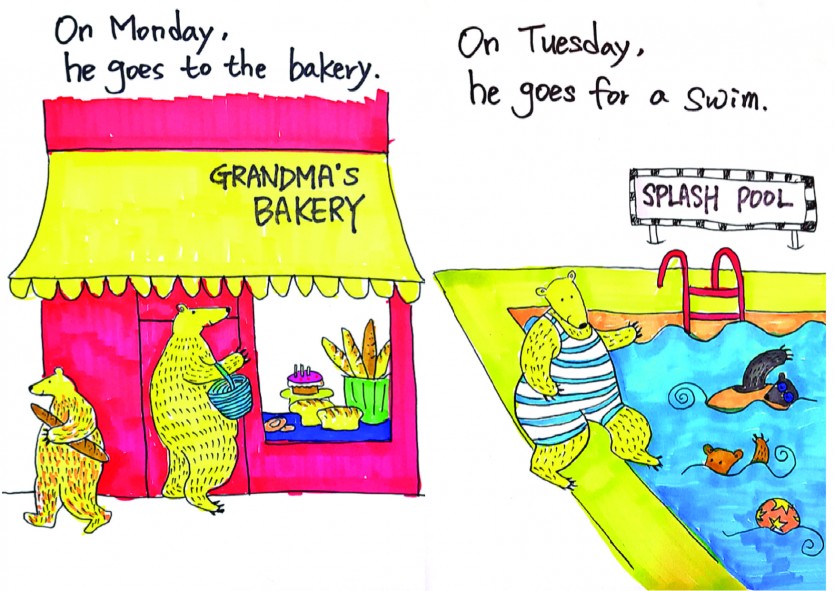 On Monday,
he goes to the bakery.
GRANDMA'S
BAKERY
On Tuesday,
he goes for a swim.
SPLASH POOL